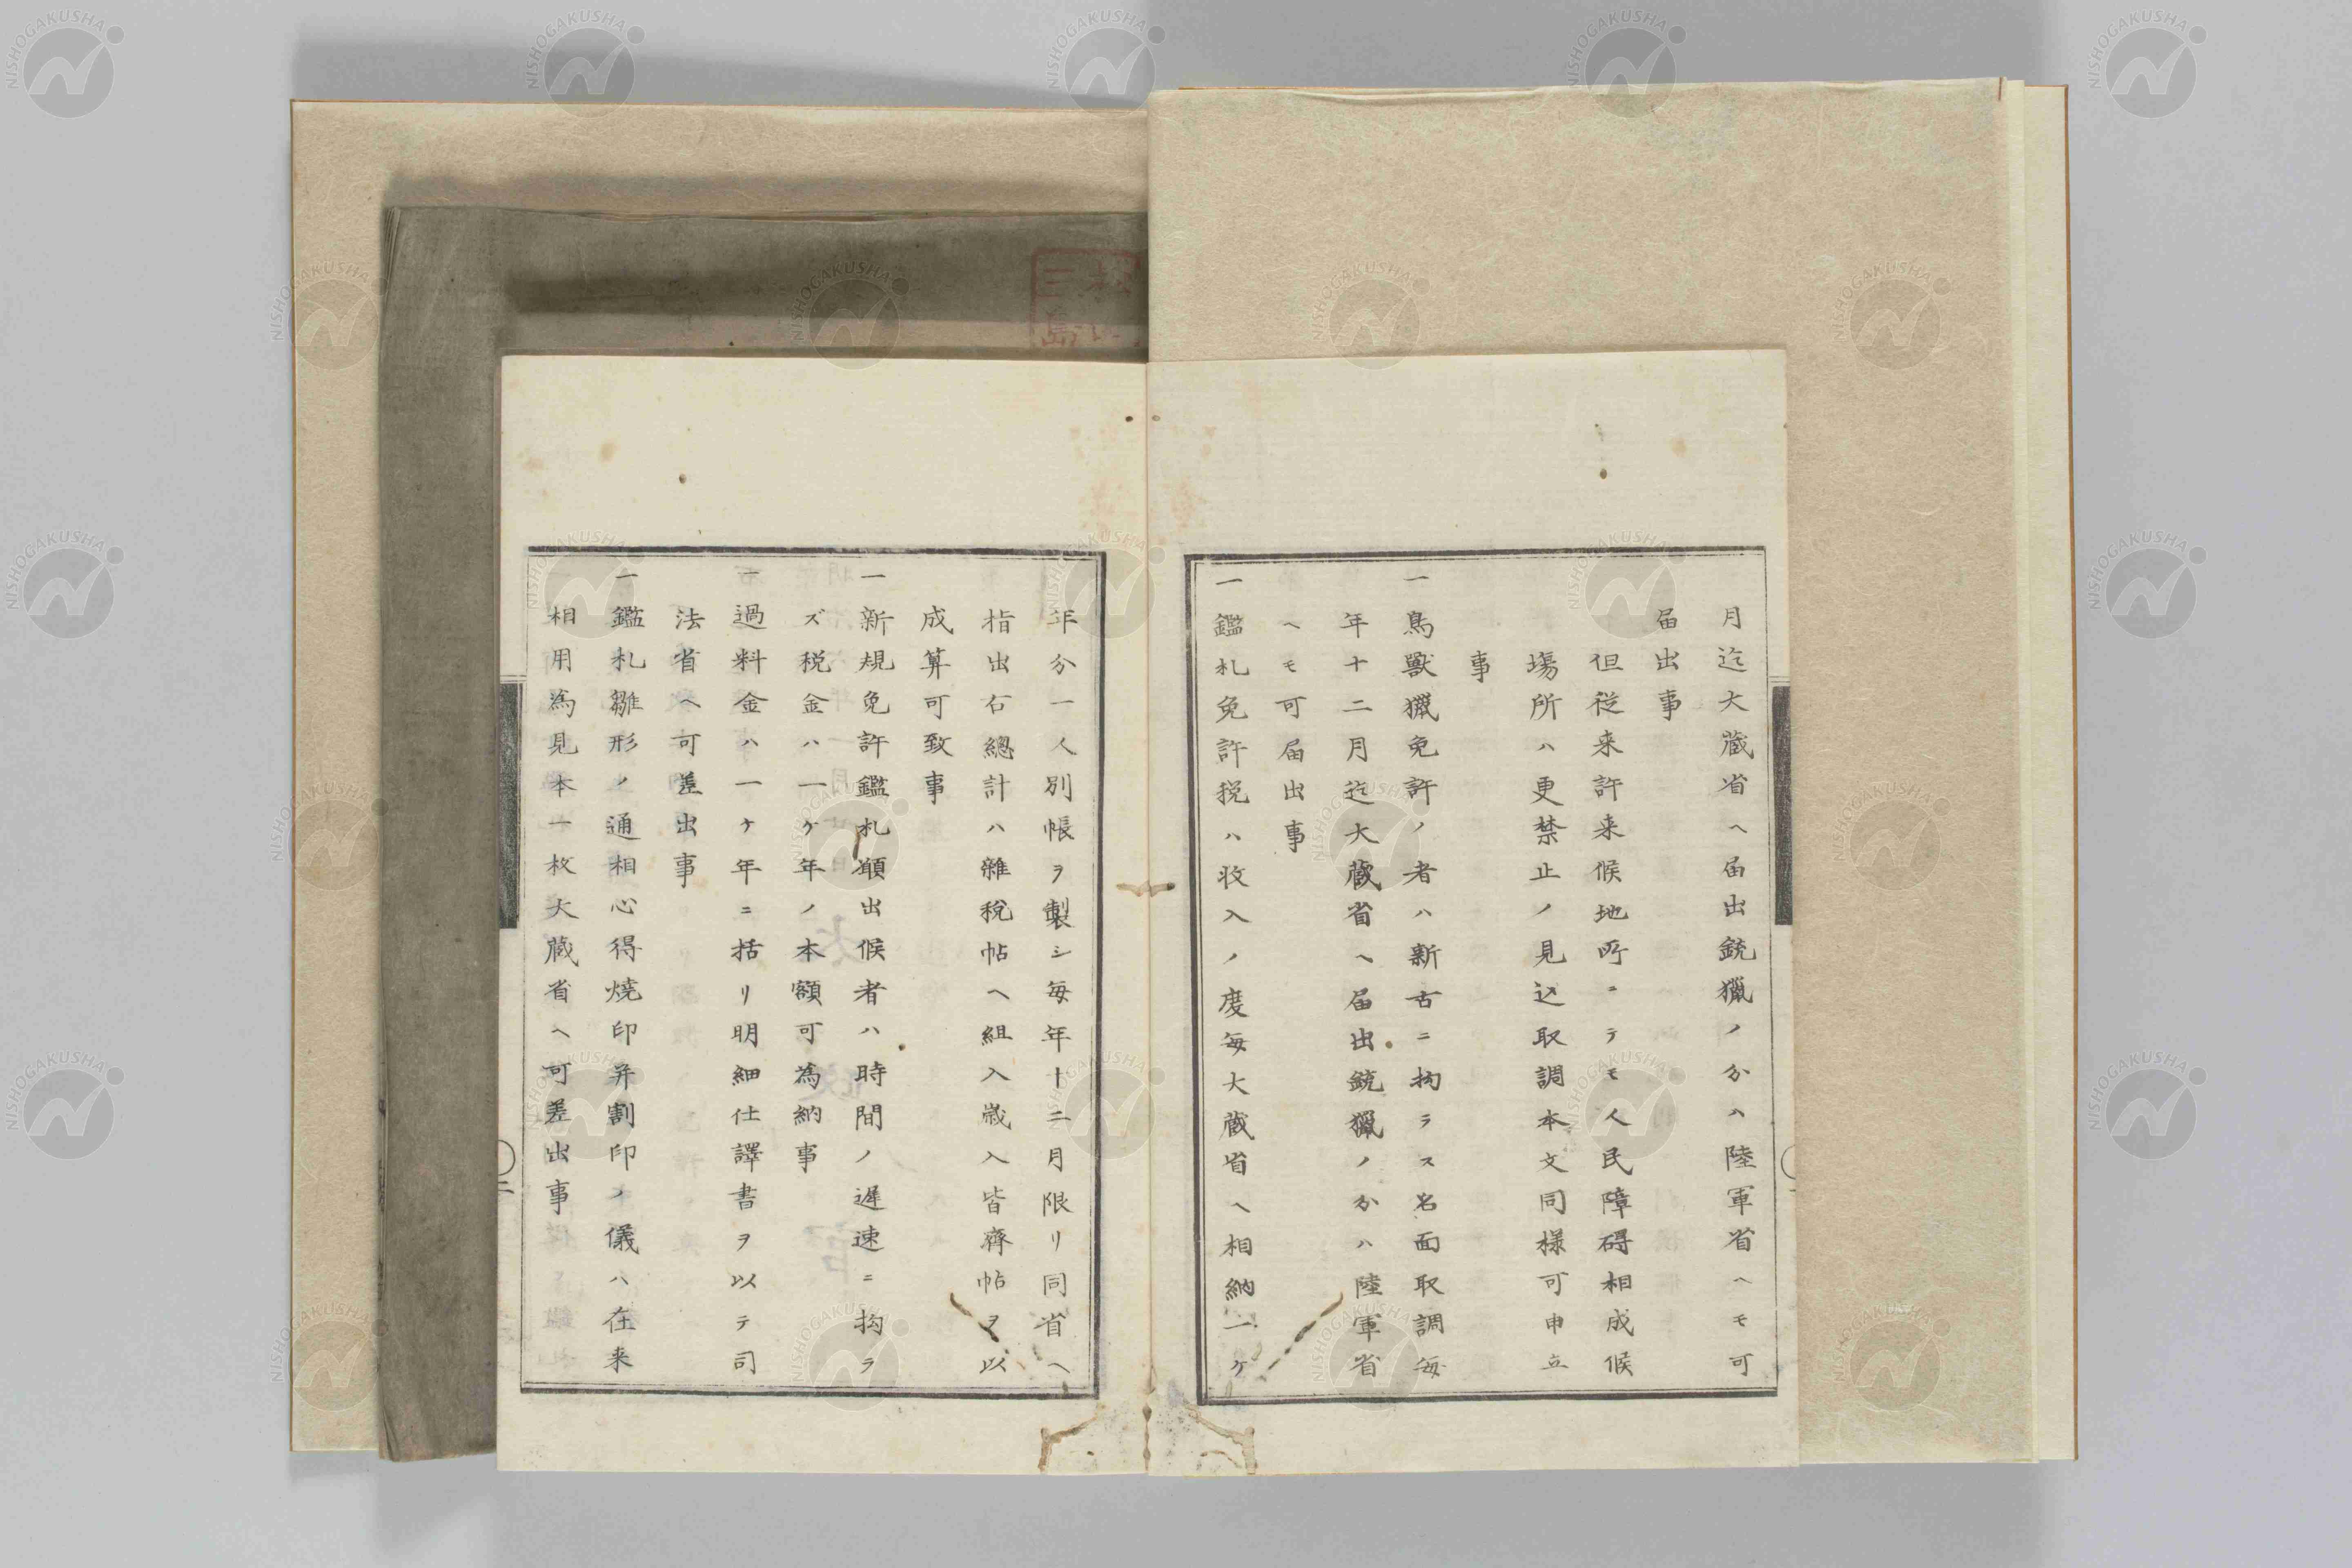 月迄大蔵省ヘ届出銃獵ノ分ハ陸軍省ヘモ可
届出事
但従来許来候地所ニテモ人民障碍相成候
塲所ハ更禁止ノ見込取調本文同様可申立
事
一鳥獸獵免許ノ者ハ新古ニ拘ラス名面取調毎
年十二月迄大蔵省ヘ届出銃獵ノ分ハ陸軍省
ヘモ可届出事
一鑑札免許税ハ收入ノ度毎大蔵省ヘ相納一ケ
年分一人別帳ヲ製シ毎年十二月限リ同省ヘ
指出右總計ハ雜税帖ヘ組入歳入皆齊帖ヲ以
成算可致事
一新規免許鑑札願出候者ハ時間ノ遅速ニ拘ラ
ズ税金ハ一ケ年ノ本額可為納事
一過料金ハ一ケ年ニ括リ明細仕譯書ヲ以テ司
法省ヘ可差出事
一鑑札雛形ノ通相心得焼印并割印ノ儀ハ在来
相用為見本一枚大蔵省ヘ可差出事
二
三島
NISHOGAKUSHA